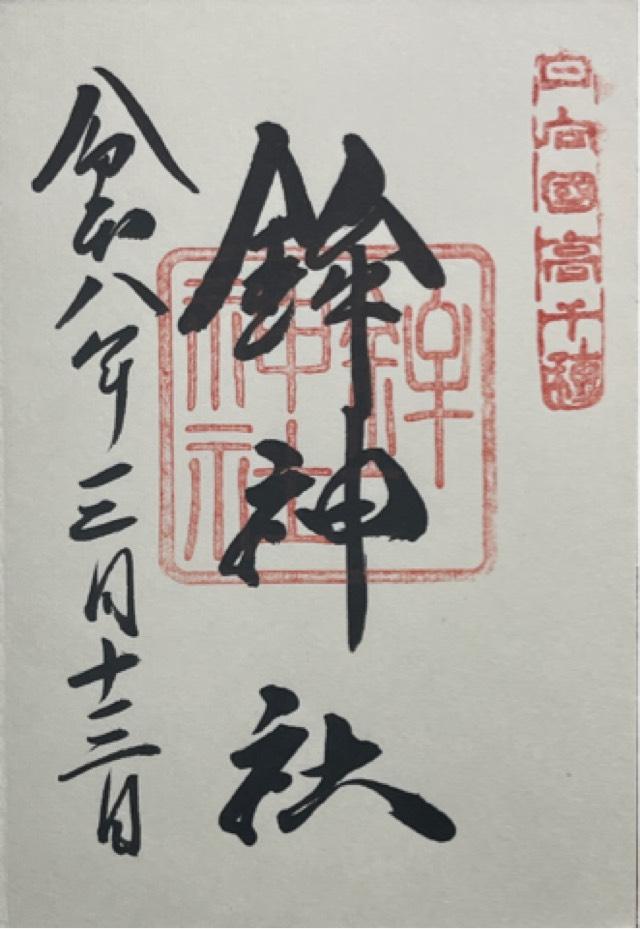 日向國高千穂
鉾神社
鉾神社
令和八年三月十三日